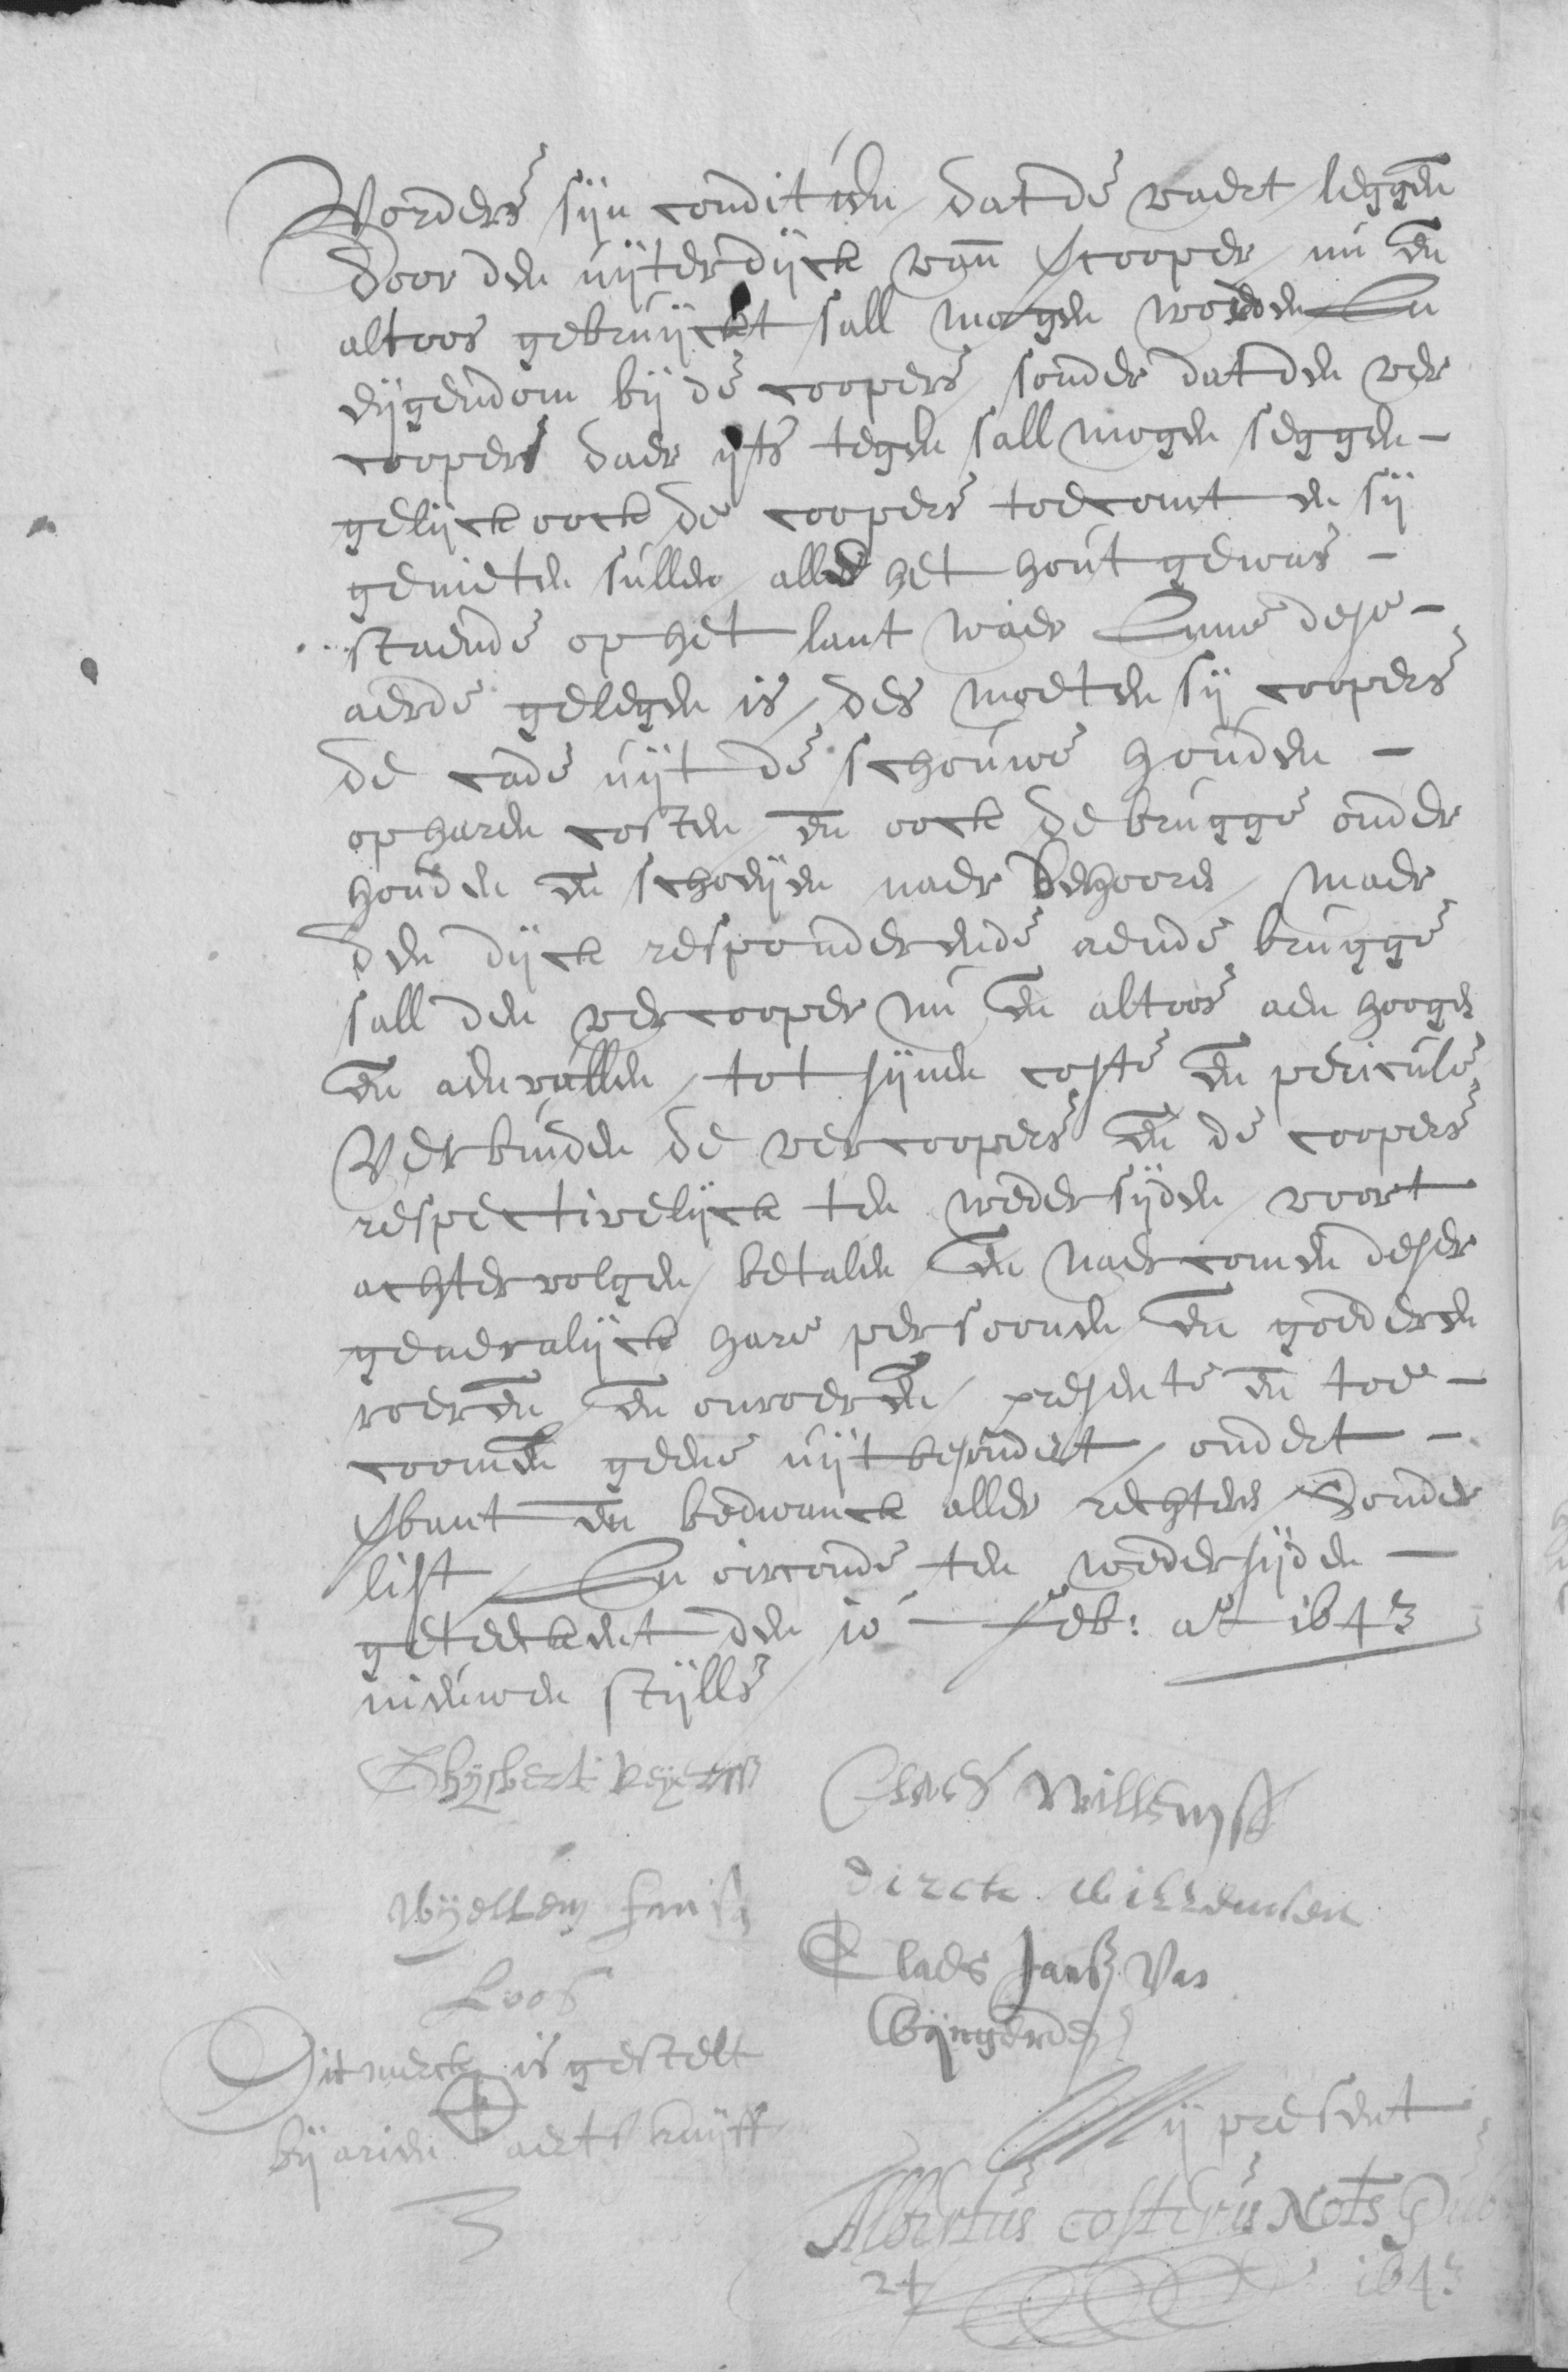 Vorders sijn conditien datde vaert leggen
door den uijterdijck vann vcooper nu en
altoos gebruijckt sall mogen worden In
eijgendom bij de coopers sonder dat den ver
coopers daer ijts tegen sall mogen seggen -
gelijck oock de coopers toecomt en sij
genieten sullen alle het hout gewas -
staende op het lant waer Inne dese -
aerde gelegen is / des moeten sij coopers
de cade uijt de schouwe houden -
op haren costen en oock de brugge onder
houden en schoeijen naer behoore / maer
den dijck responderende aende brugge
sall den vercooper nu en altoos aen hoogen
en aenvullen / tot sijnen coste en periculo
Verbinden de vercoopers en de coopers
respectivelijck ten wedersijden voort
achtervolgen / betalen en naercomen deser
generalijck hare persoonen en goederen
roeren en onroeren / presente en toe -
coomen geene uijtbesondert / ondert -
vbant en bedwanck aller rechteren Sonder
list / In oirconde ten wedersijden -
geteeckent den 10 - Feb: ao 1643
nieuwen stijlls
Ghijsbert
Claes Willemss
Wijellem Jansz
Dirck Willemsen
Loos
Claes Jansz Van
Wijngerden
Dit merck is gestelt
bij arien aerts kuijff
Mij present
Albertus costerus Nots Pub
24 1643